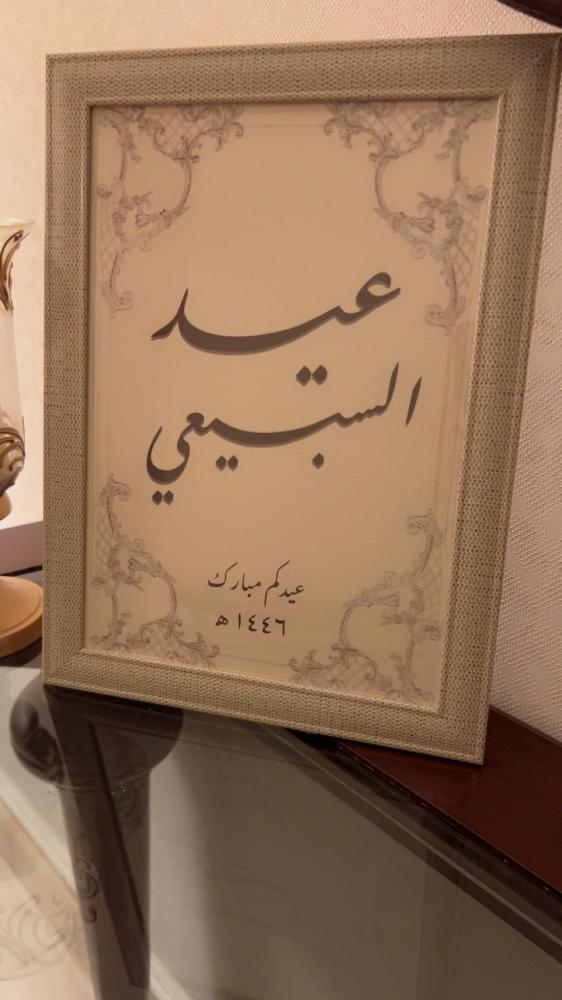 عيد
السبيعي
عيدكم مبارك
١٤٤٦ه